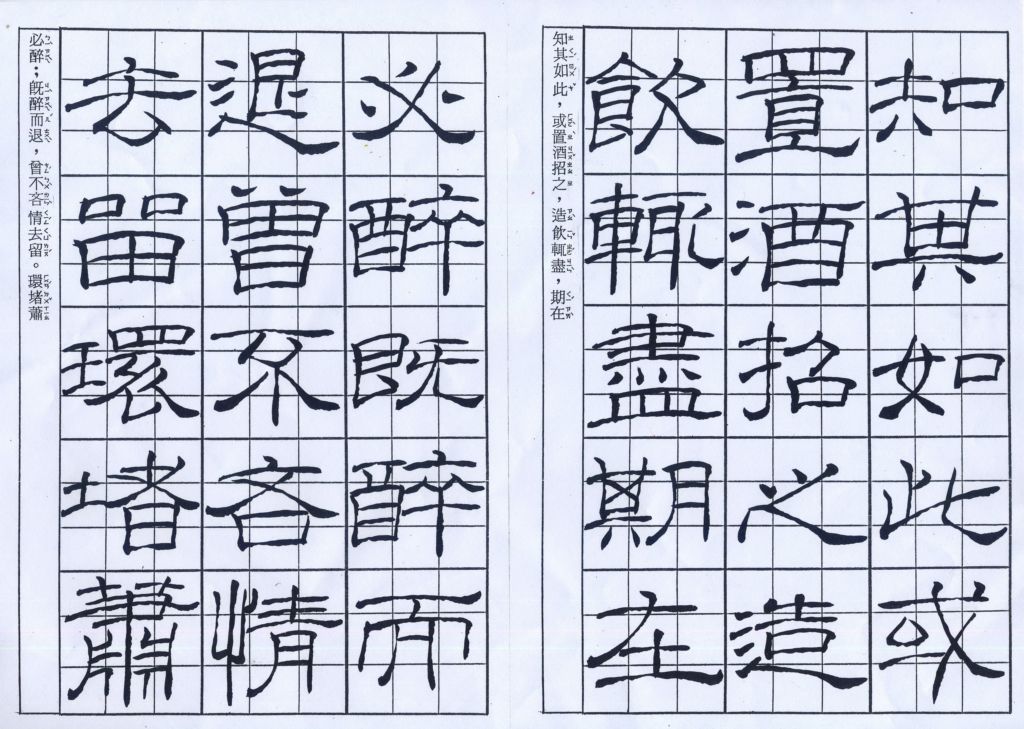 知其如此
或置酒招之
造飲輒盡期在
知其如此，或置酒招之，造飲輒盡，期在
必醉既醉而
退曾不吝情
去留環堵蕭
必醉；既醉而退，曾不吝情去留。環堵蕭